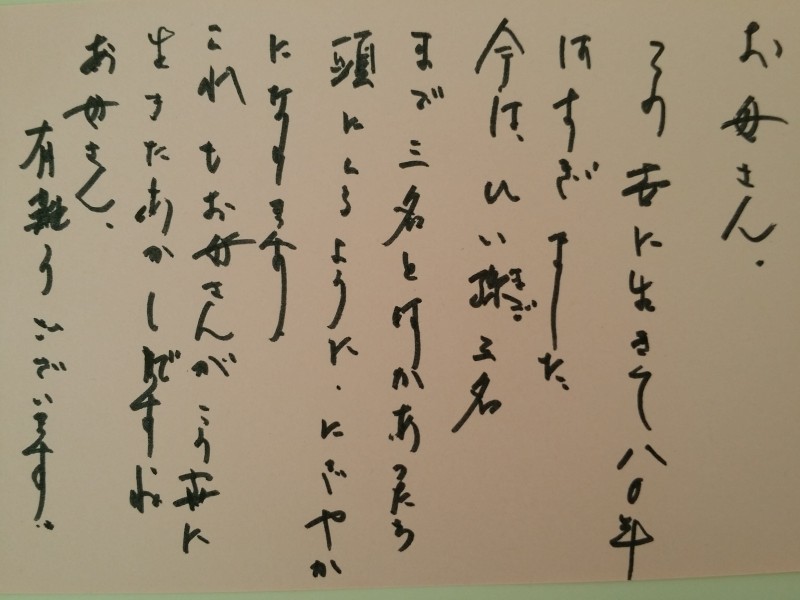 お母さん.
この世に生きて八〇年
はすぎました
今は、ひい孫まご三名
まで三名と何かあったら
頭にくるように.にぎやか
になります
これもお母さんがこの世に
生きたあかしですね
お母さん、
有難うございます。